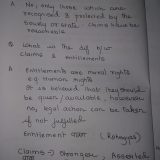 A No; only those which are
recognised & protected by the
Society or State. claims have to be
reasonable
Q What is the diff b/w
claims & entitlements
A Entitlements are moral rights
e.g. human rights.
It is believed that they should
be given / available, however
no legal action can be taken
if not fulfilled
Entitlement
Claims → Stronger, Asserted